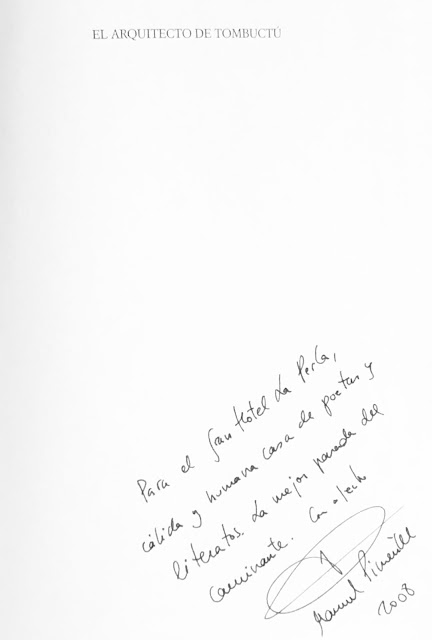 EL ARQUITECTO DE TOMBUCTÚ
Para el Gran Hotel La Perla,
cálida y humana casa de poetas y
literatos. La mejor parada del
caminante. Con afecto
Manuel Pimentel
2008